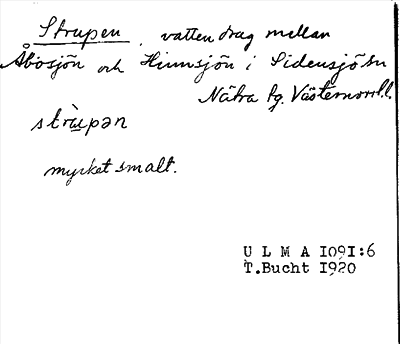 Strupen, vattendrag mellan
Åbosjön och Hinnsjön i Sidensjö sn
Nätra tg. Västernorrl.l.
strùpən
mycket smalt.
U L M A 1091:6
T.Bucht 1920